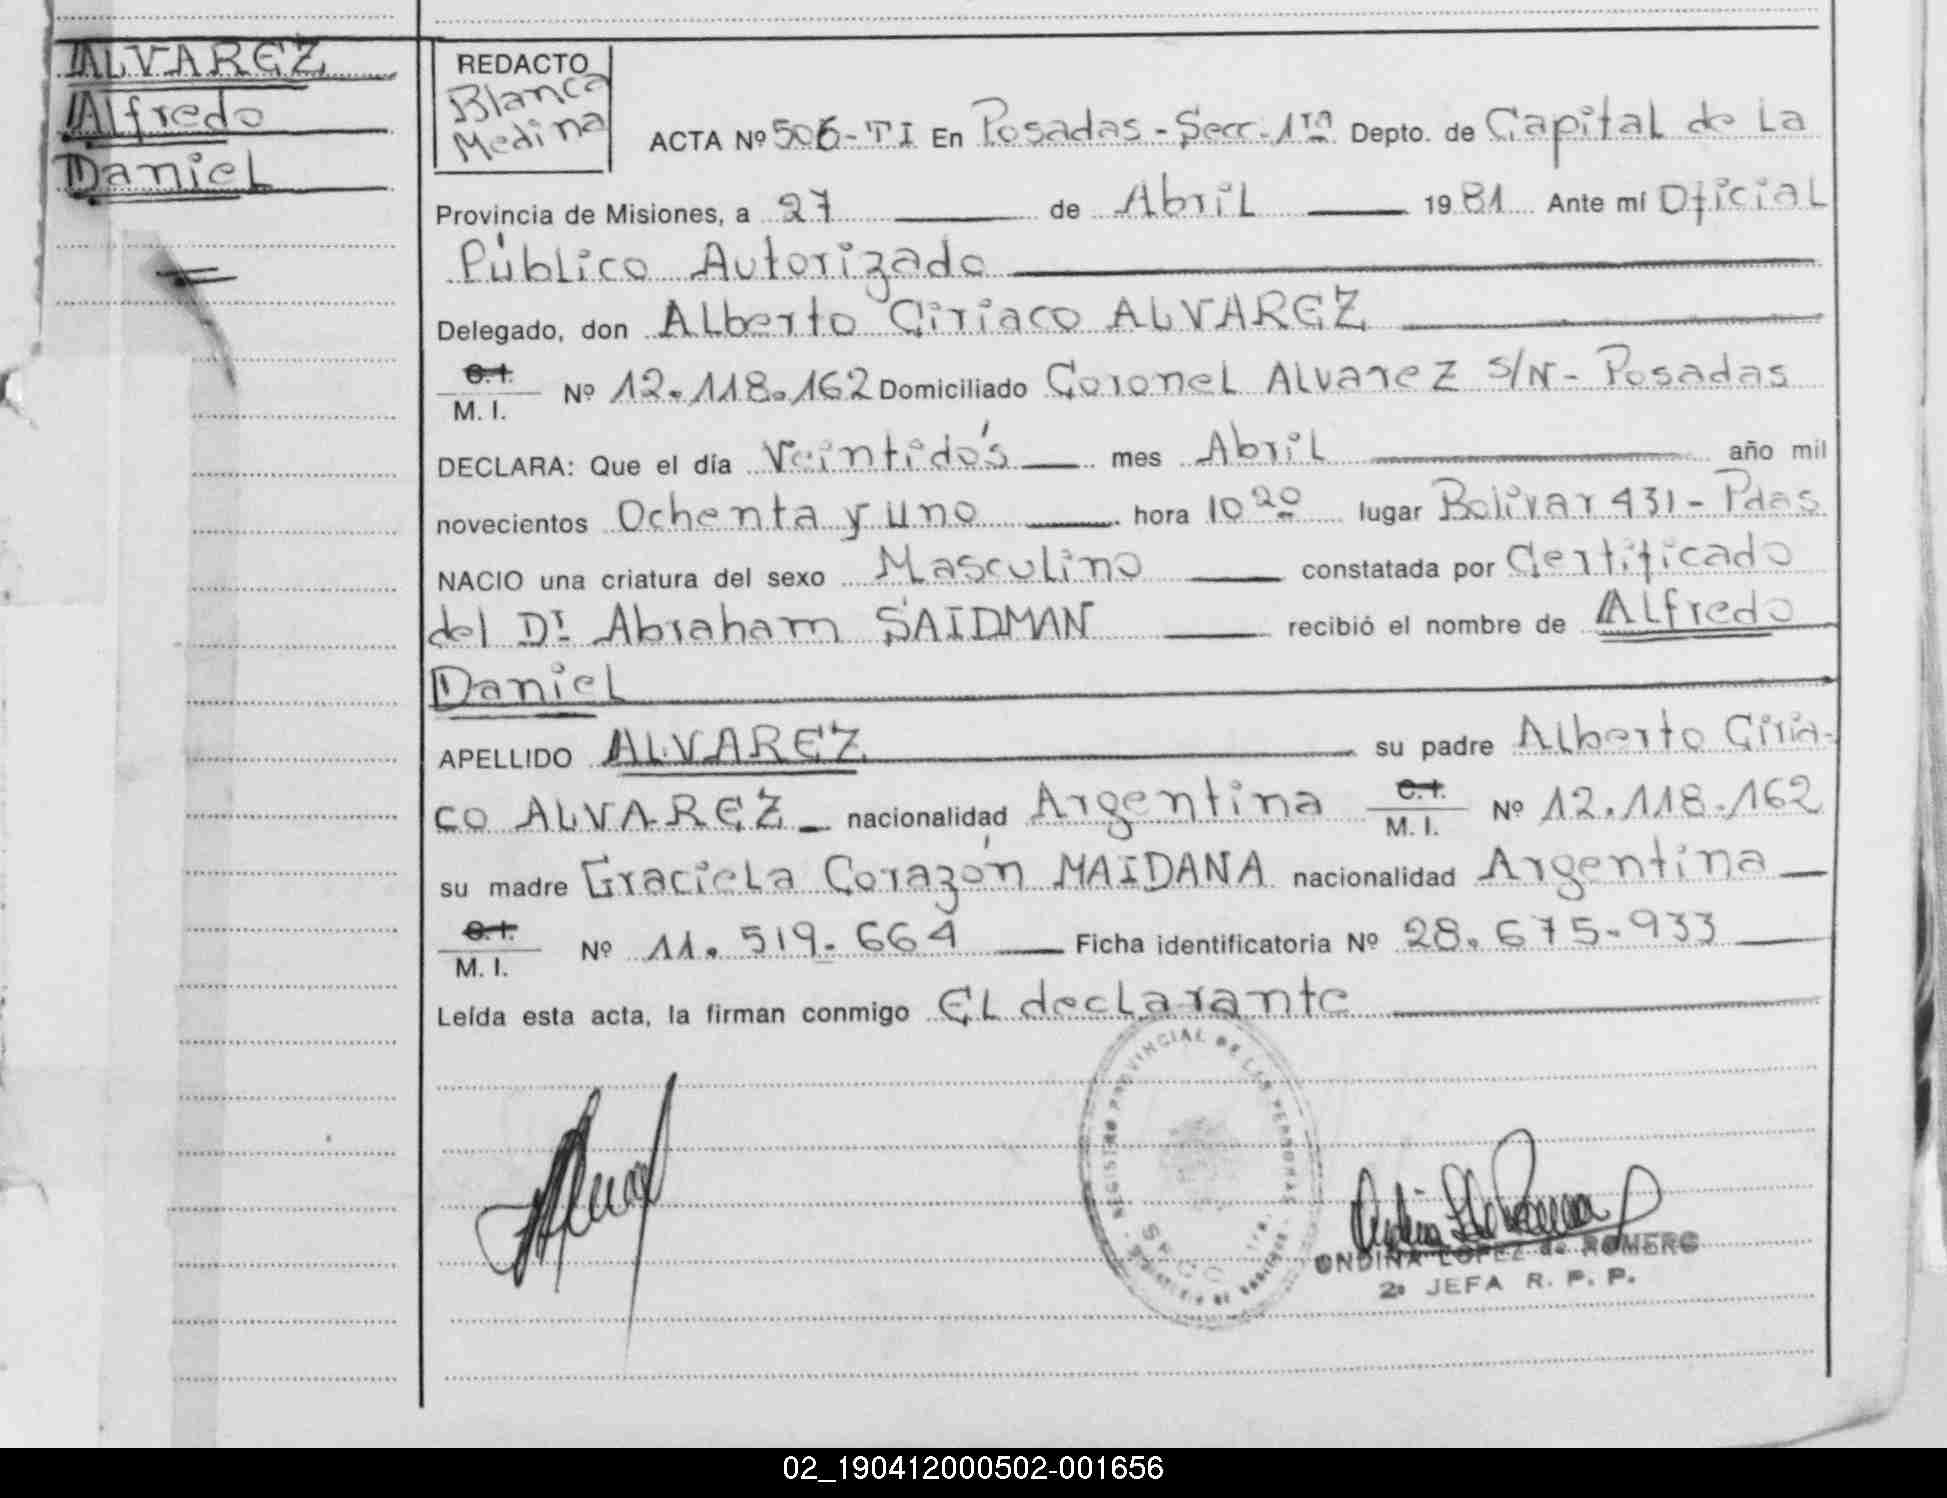 ALVAREZ
Alfredo
Daniel
REDACTO
Blanca
Medina
ACTA Nº 506-TI En Posadas-Secc.1ra Depto. de Capital de La
Provincia de Misiones, a 27 de Abril 1981 Ante mí Oficial
Público Autorizado
Delegado, don Alberto Ciriaco ALVAREZ
C.I.
M. I. Nº 12.118.162 Domiciliado Coronel Alvarez S/N- Posadas
DECLARA: Que el día Veintidós mes Abril año mil
novecientos Ochenta y uno hora 10 20 lugar Bolívar 431 - Pdas
NACIO una criatura del sexo Masculino constatada por Certificado
del Dr Abraham SAIDMAN recibió el nombre de Alfredo
Daniel
APELLIDO ALVAREZ su padre Alberto Ciria-
co ALVAREZ nacionalidad Argentina C.I. M. I. Nº 12.118.162
su madre Graciela Corazón MAIDANA nacionalidad Argentina
C.I.
M. I. Nº 11.519.664 Ficha identificatoria Nº 28.675.933
Leída esta acta, la firman conmigo El declarante
REGISTRO PROVINCIAL DE LAS PERSONAS
ONDINA LOPEZ de ROMERO
2ª JEFA R. P. P.
02_190412000502-001656